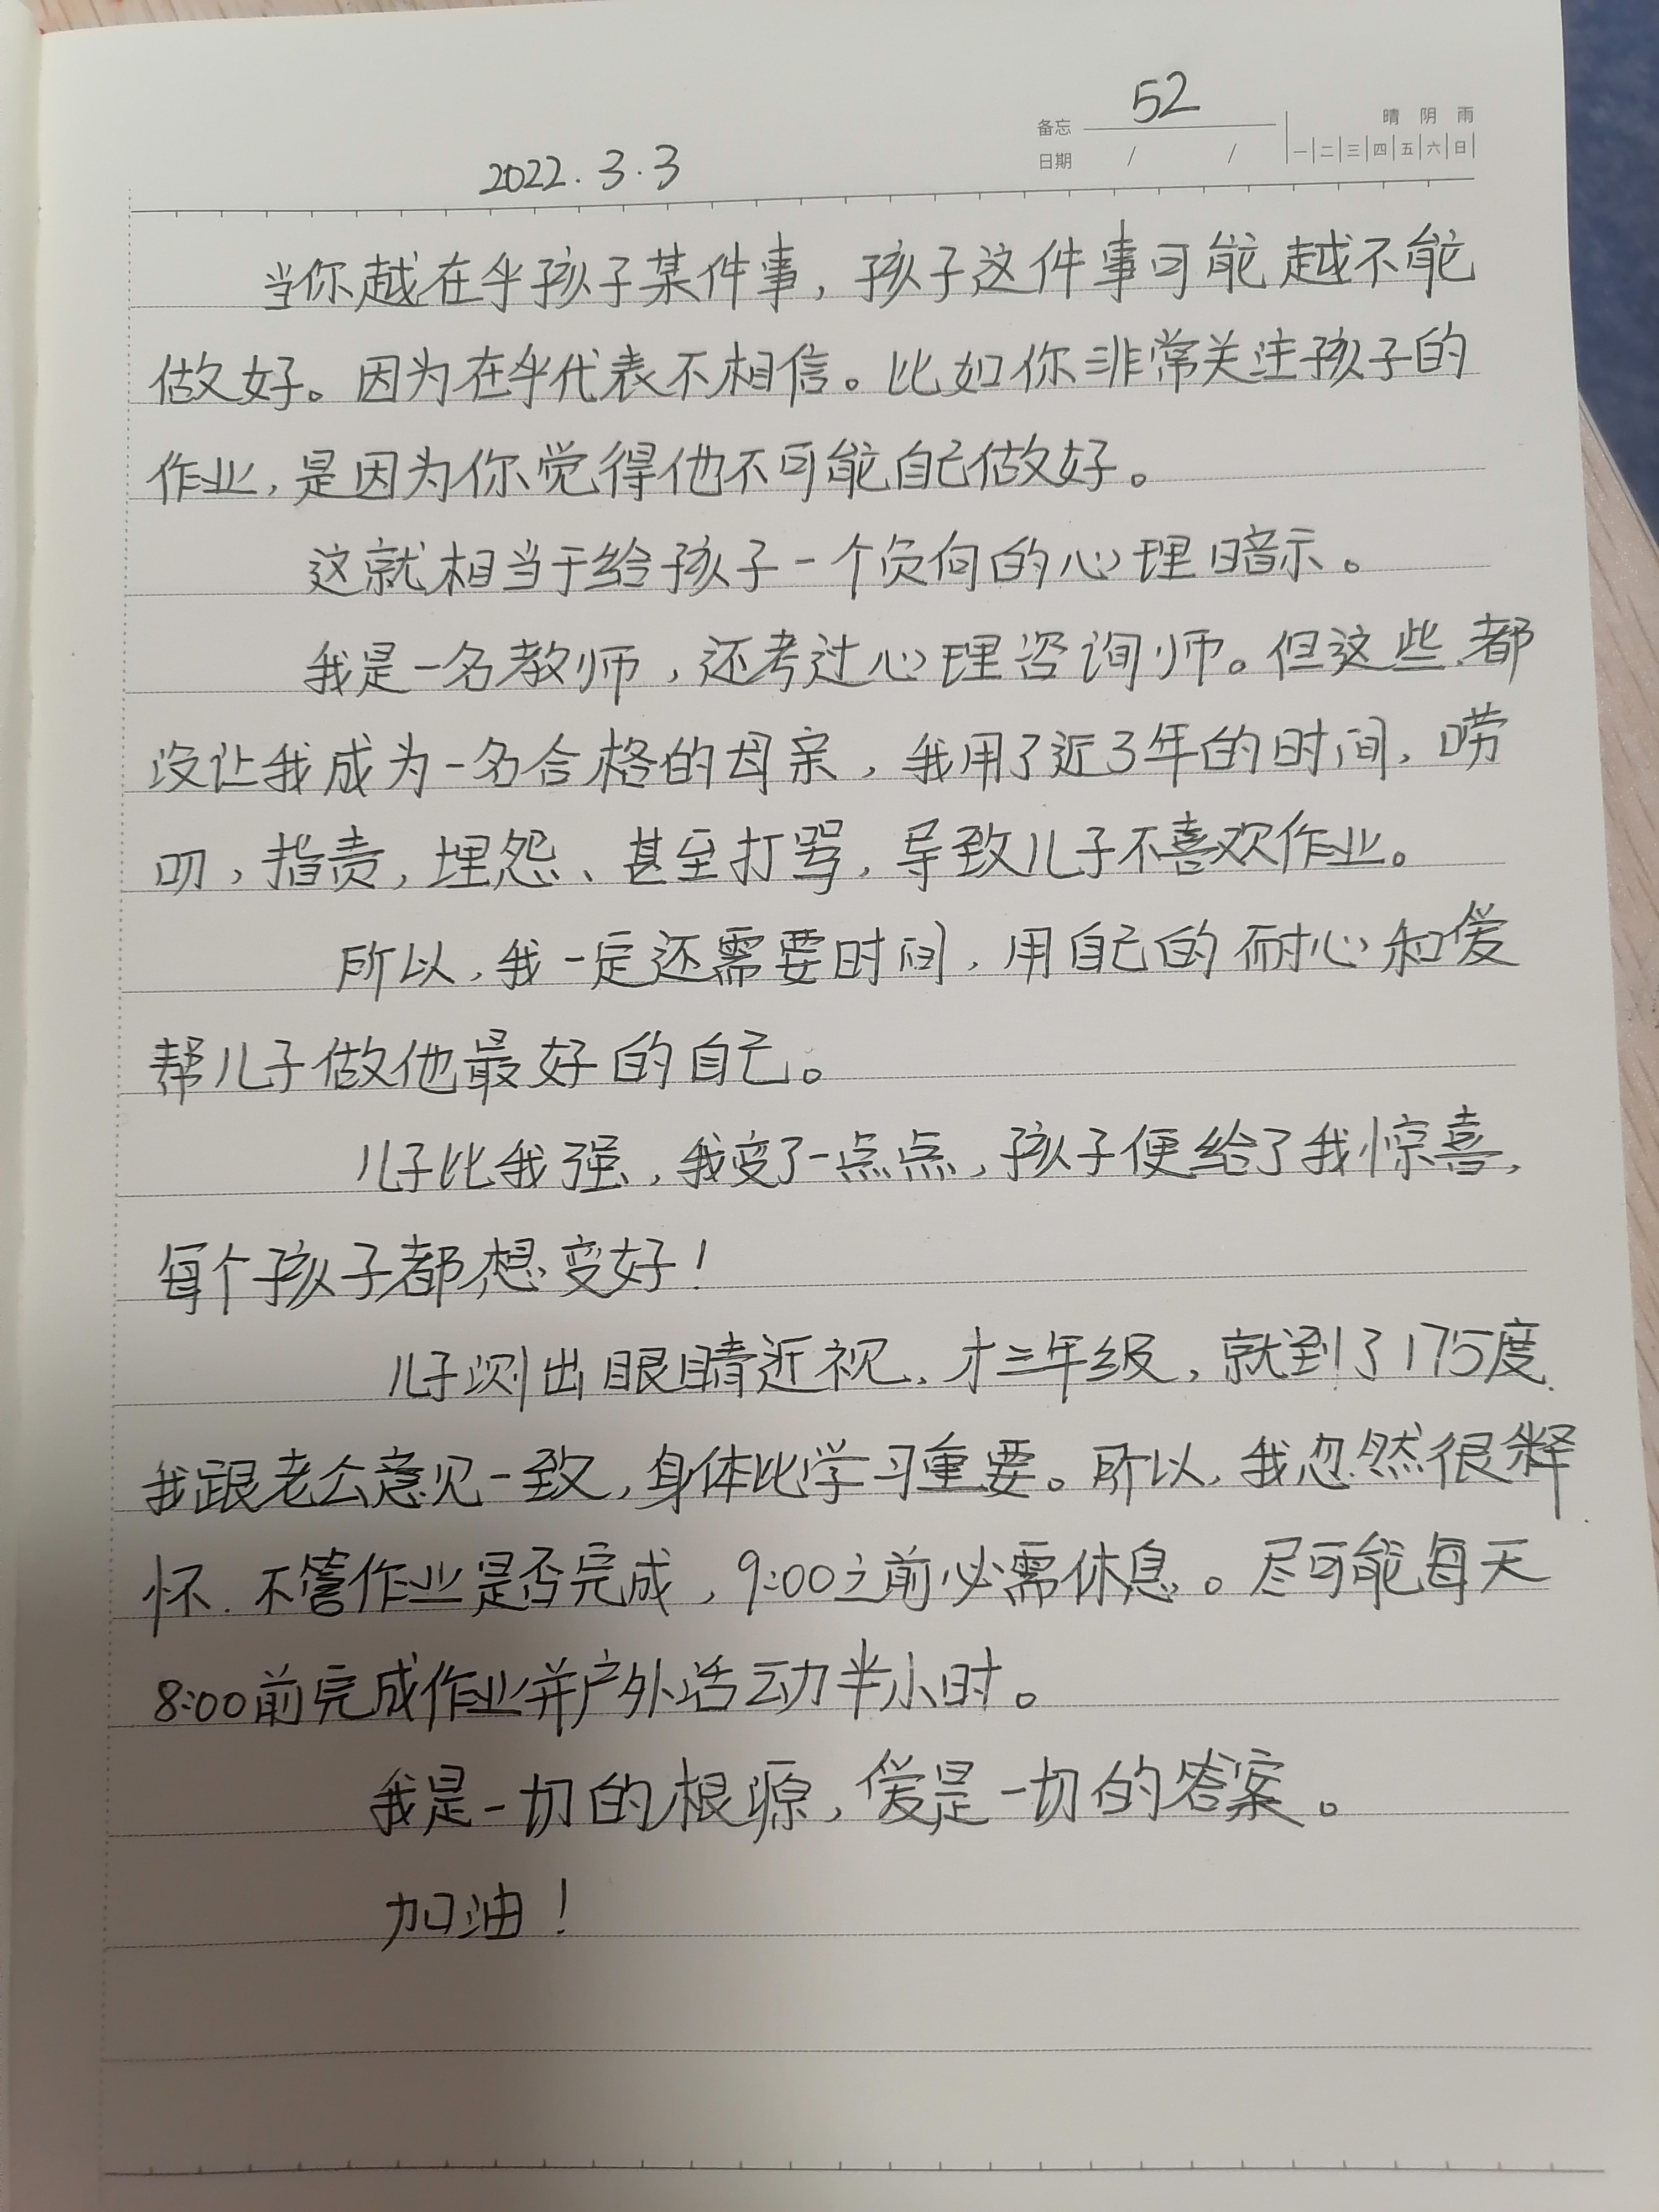 52
备忘
晴 阴 雨
日期 / /
一 二 三 四 五 六 日
2022.3.3
当你越在乎孩子某件事，孩子这件事可能越不能
做好。因为在乎代表不相信。比如你非常关注孩子的
作业，是因为你觉得他不可能自己做好。
这就相当于给孩子一个负向的心理暗示。
我是一名教师，还考过心理咨询师。但这些都
没让我成为一名合格的母亲，我用了近3年的时间，唠
叨，指责，埋怨、甚至打骂，导致儿子不喜欢作业。
所以，我一定还需要时间，用自己的耐心和爱
帮儿子做他最好的自己。
儿子比我强，我变了一点点，孩子便给了我惊喜，
每个孩子都想变好！
儿子测出眼睛近视，才三年级，就到了175度.
我跟老公意见一致，身体比学习重要。所以，我忽然很释
怀.不管作业是否完成，9:00之前必需休息。尽可能每天
8:00前完成作业并户外活动半小时。
我是一切的根源，爱是一切的答案。
加油！